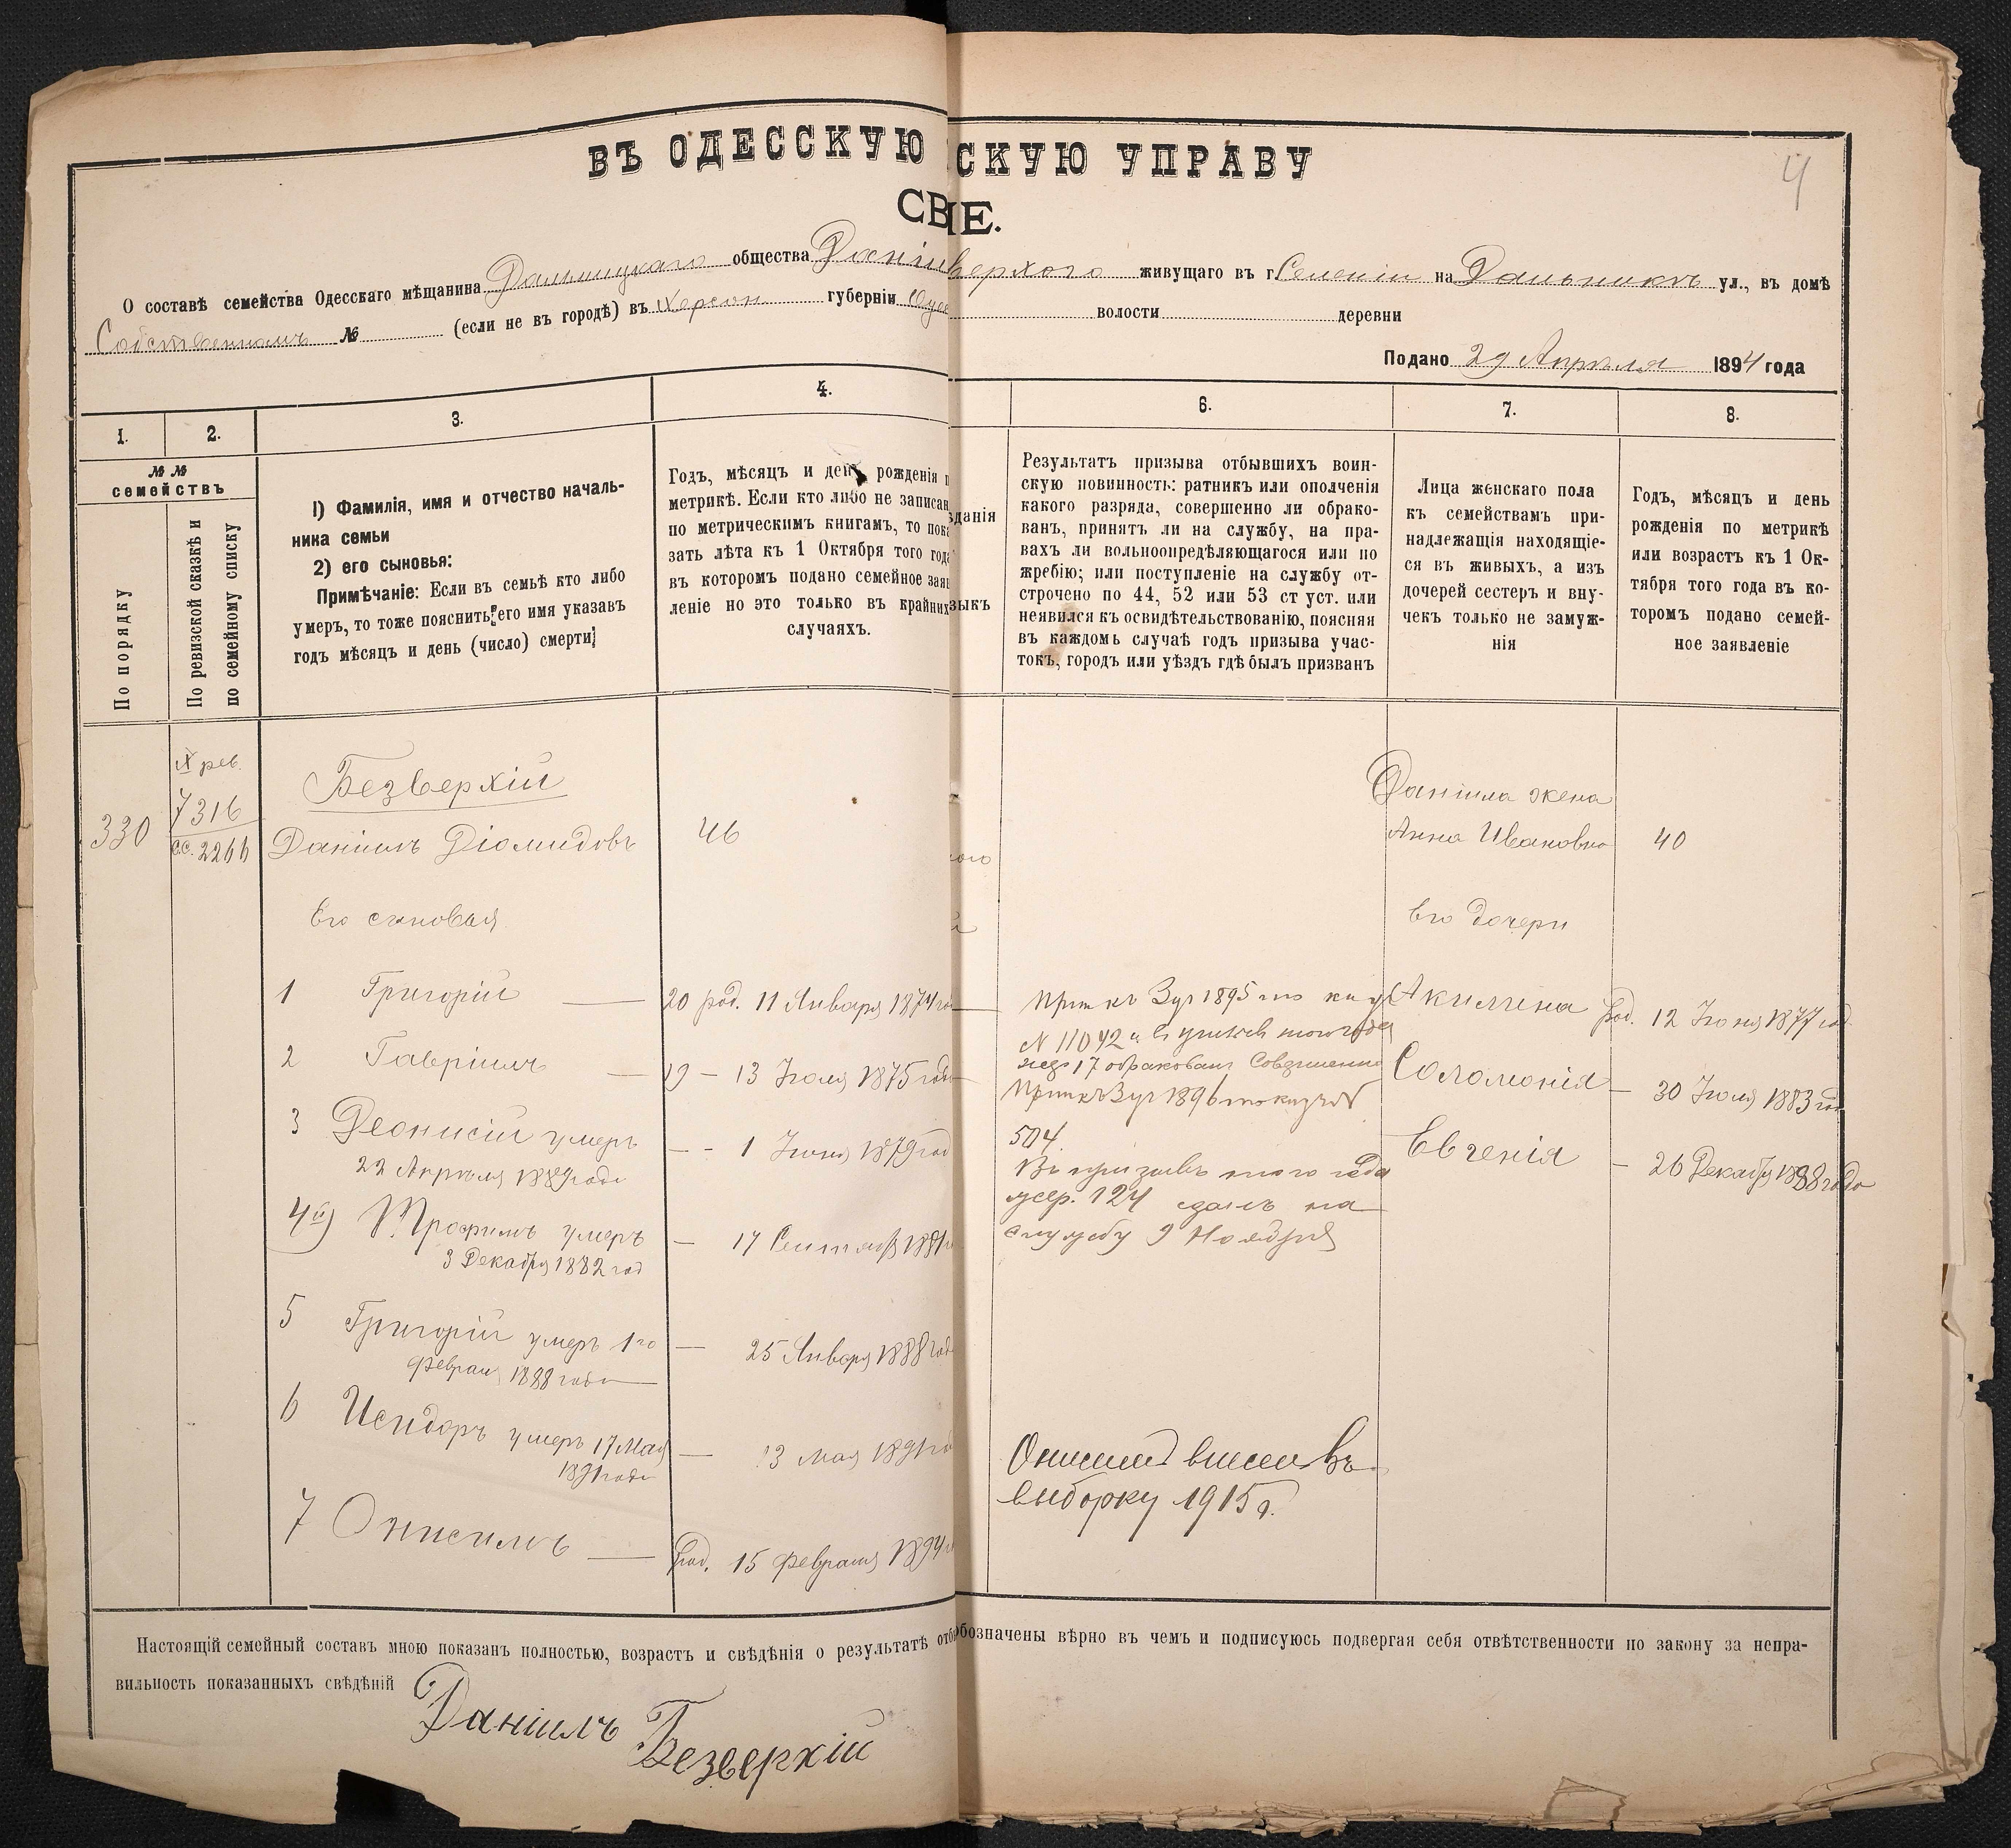 ВЪ ОДЕССКУЮ СКУЮ УПРАВУ
4
СВ IE.
О составѣ семейства Одесскаго мѣщанина Дальницкаго общества Дані верхого живущаго въ г Селеніи на Дальникъ ул., въ домѣ
Собственномъ № (если не въ городѣ) въ Херсон губерніи Одес волости деревни
Подано 29 Апрѣля 1894 года
1. 2. 3. 4. 6. 7. 8.
№ № семействъ
По порядку
По ревизской сказкѣ и
по семейному списку
1) Фамилія, имя и отчество началь-
ника семьи
2) его сыновья:
Примѣчаніе: Если въ семьѣ кто либо
умеръ, то тоже пояснить его имя указавъ
годъ мѣсяцъ и день (число) смерти;
Годъ, мѣсяцъ и день рожденія п
метрикѣ. Если кто либо не записан
по метрическимъ книгамъ, то пока
зать лѣта къ 1 Октября того года
въ которомъ подано семейное заяв
леніе но это только въ крайних
случаяхъ.
зданія
зыкъ
Результатъ призыва отбывшихъ воин-
скую повинность: ратникъ или ополченія
какого разряда, совершенно ли обрако-
ванъ, принятъ ли на службу, на пра-
вахъ ли вольноопредѣляющагося или по
жребію; или поступленіе на службу от-
строчено по 44, 52 или 53 ст уст. или
неявился къ освидѣтельствованію, поясняя
въ каждомъ случаѣ годъ призыва учас-
токъ, городъ или уѣздъ гдѣ былъ призванъ
Лица женскаго пола
къ семействамъ при-
надлежащія находящіе-
ся въ живыхъ, а изъ
дочерей сестеръ и вну-
чекъ только не замуж-
нія
Годъ, мѣсяцъ и день
рожденія по метрикѣ
или возрастъ къ 1 Ок-
тября того года въ ко-
торомъ подано семей-
ное заявленіе
330
X рев.
7316
сс. 2266
Безверхій
Даніилъ Діомидовъ 46
Его сыновья
1 Григорій — 20 род. 11 Января 1874 го
2 Гавріилъ — 19 — 13 Іюля 1875 года
3 Деонисій умеръ — - 1 Іюня 1879 год
22 Апрѣля 1889 года
4й) Трофимъ умеръ — 17 Сентября 1881
3 Декабря 1882 год
5 Григорій умеръ 1го — 25 Января 1888 года
Февраля 1888 года
6 Исидоръ умеръ 17 Мая — 13 Мая 1891 го
1891 года
7 Онисимъ — род. 15 Февраля 1894
ого
й
1895
N 11042
17 обракованъ Совершенно
1896
504
Въ призывъ того года
жер. 124 сданъ на
службу 9 Ноября
Онисим внесен въ
выборку 1915 г.
Даніила жена
Анна Ивановна 40
Его дочери
Акилина род. 12 Іюня 1877 год.
Соломонія — 30 Іюля 1883 год
Евгенія — 26 Декабря 1888 года
Настоящій семейный составъ мною показанъ полностью, возрастъ и свѣдѣнія о результатѣ отб обозначены вѣрно въ чемъ и подписуюсь подвергая себя отвѣтственности по закону за непра-
вильность показанныхъ свѣдѣній
Даніилъ Безверхій